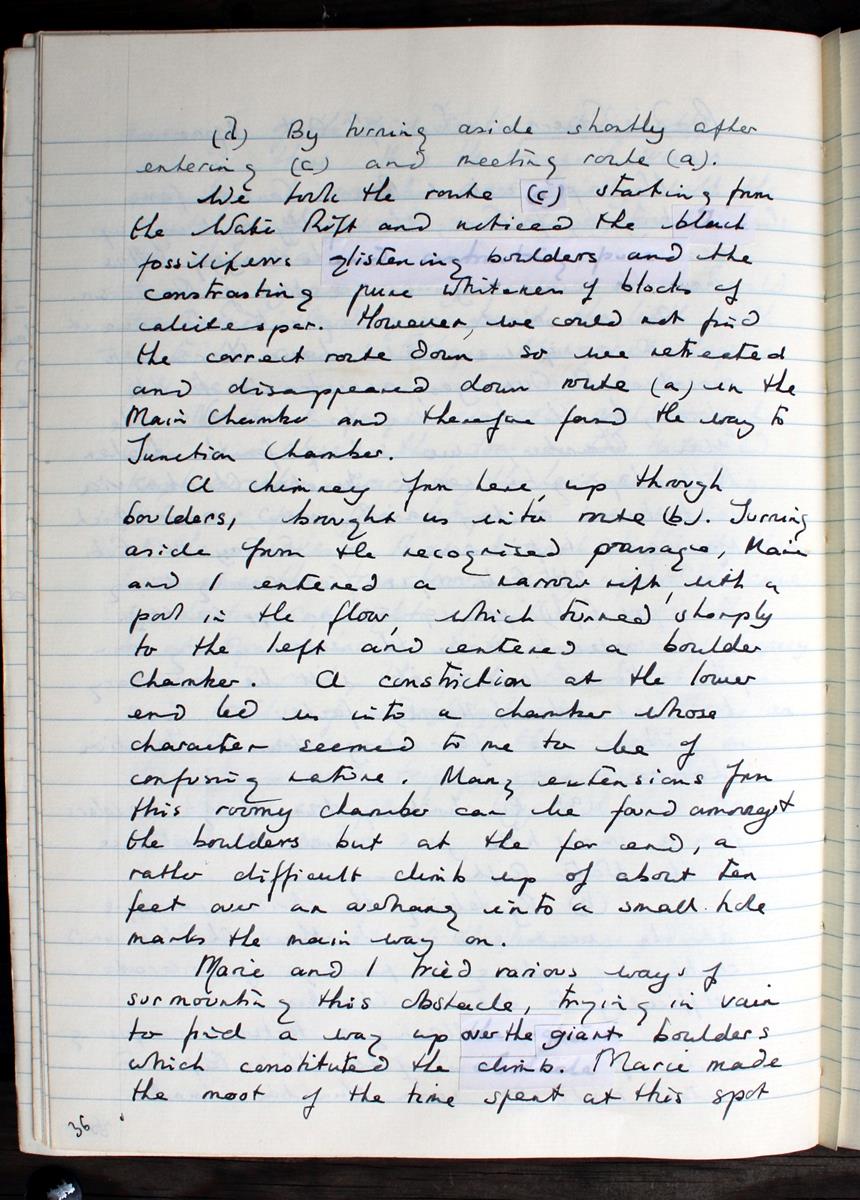 (d) By turning aside shortly after
entering (c) and meeting route (a).
We took the route (c) starting from
the Water Rift and noticed the black
fossiliferous glistening boulders and the
constrasting pure whiteness of blocks of
calcitespar. However, we could not find
the correct route down so we retreated
and disappeared down route (a) in the
Main Chamber and therefore found the way to
Junction Chamber.
A chimney from here, up through
boulders, brought us into route (b). Turning
aside from the recognised passage, Marie
and I entered a narrow rift, with a
pool in the floor, which turned sharply
to the left and entered a boulder
chamber. A constriction at the lower
end led us into a chamber whose
character seemed to me to be of
confusing nature. Many extensions from
this roomy chamber can be found amongst
the boulders but at the far end, a
rather difficult climb up of about ten
feet over an overhang into a small hole
marks the main way on.
Marie and I tried various ways of
surmounting this obstacle, trying in vain
to find a way up over the giant boulders
which constituted the climb. Marie made
the most of the time spent at this spot
36